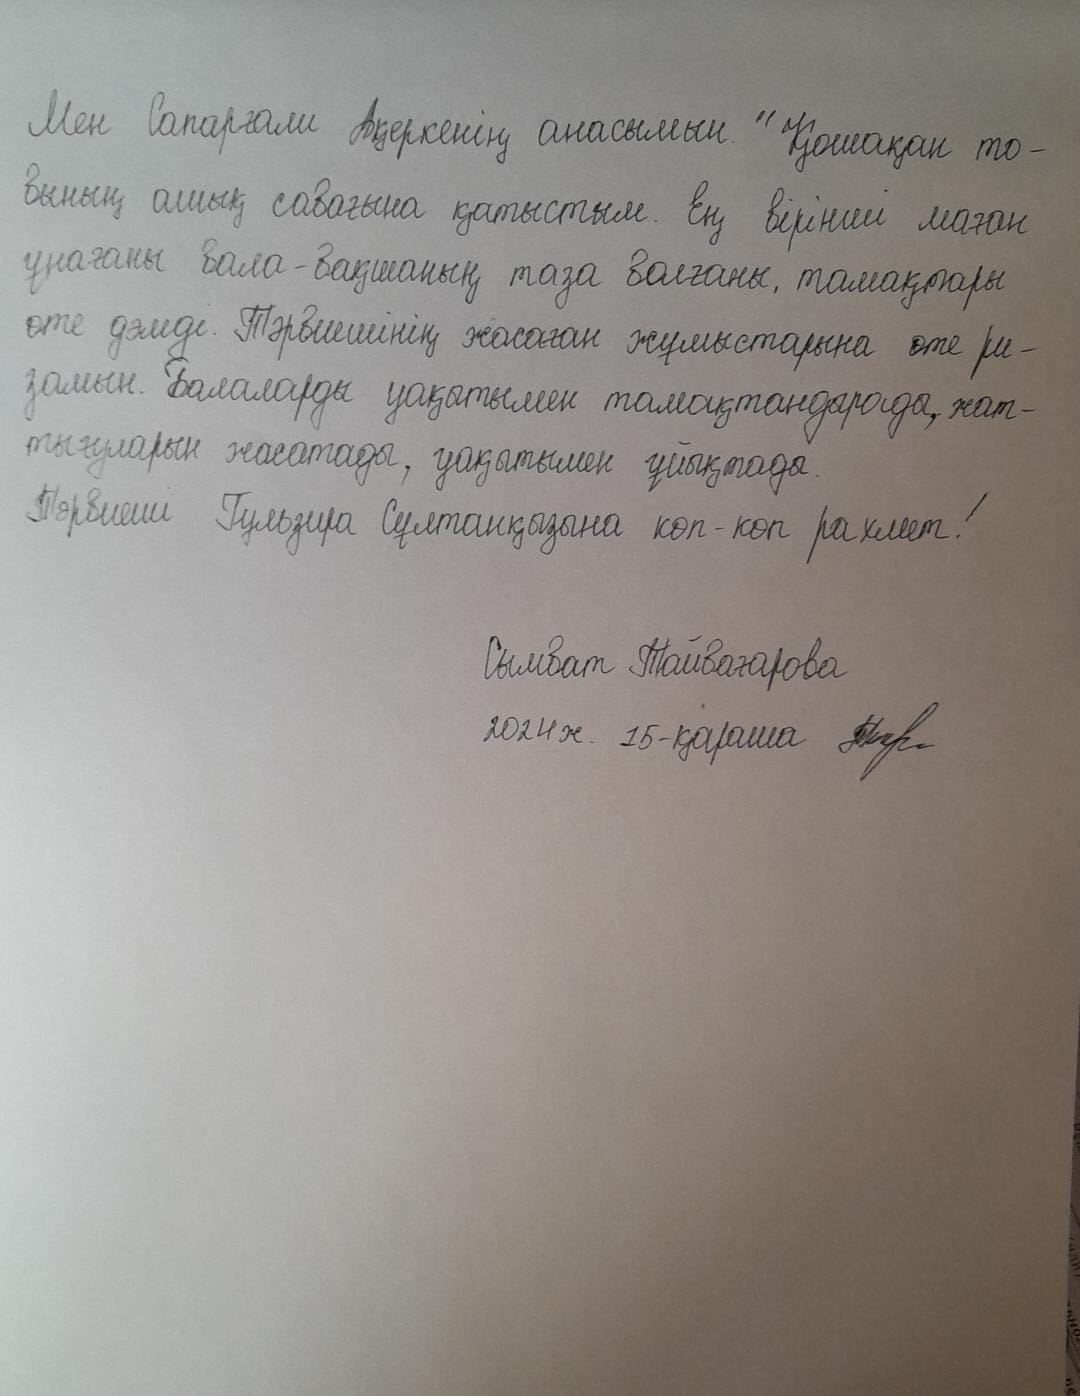 Мен Сапарғали Ақеркенің анасымын. "Қошақан то-
бының ашық сабағына қатыстым. Ең бірінші маған
ұнағаны бала-бақшаның таза болғаны, тамақтары
өте дәмді. Тәрбиешінің жасаған жұмыстарына өте ри-
замын. Балаларды уақытымен тамақтандырады, жат-
тығуларын жасатады, уақытымен ұйықтады.
Тәрбиеші Гульзира Сұлтанқызына көп-көп рахмет!
Сымбат Тайбағарова
2024ж. 15-қараша